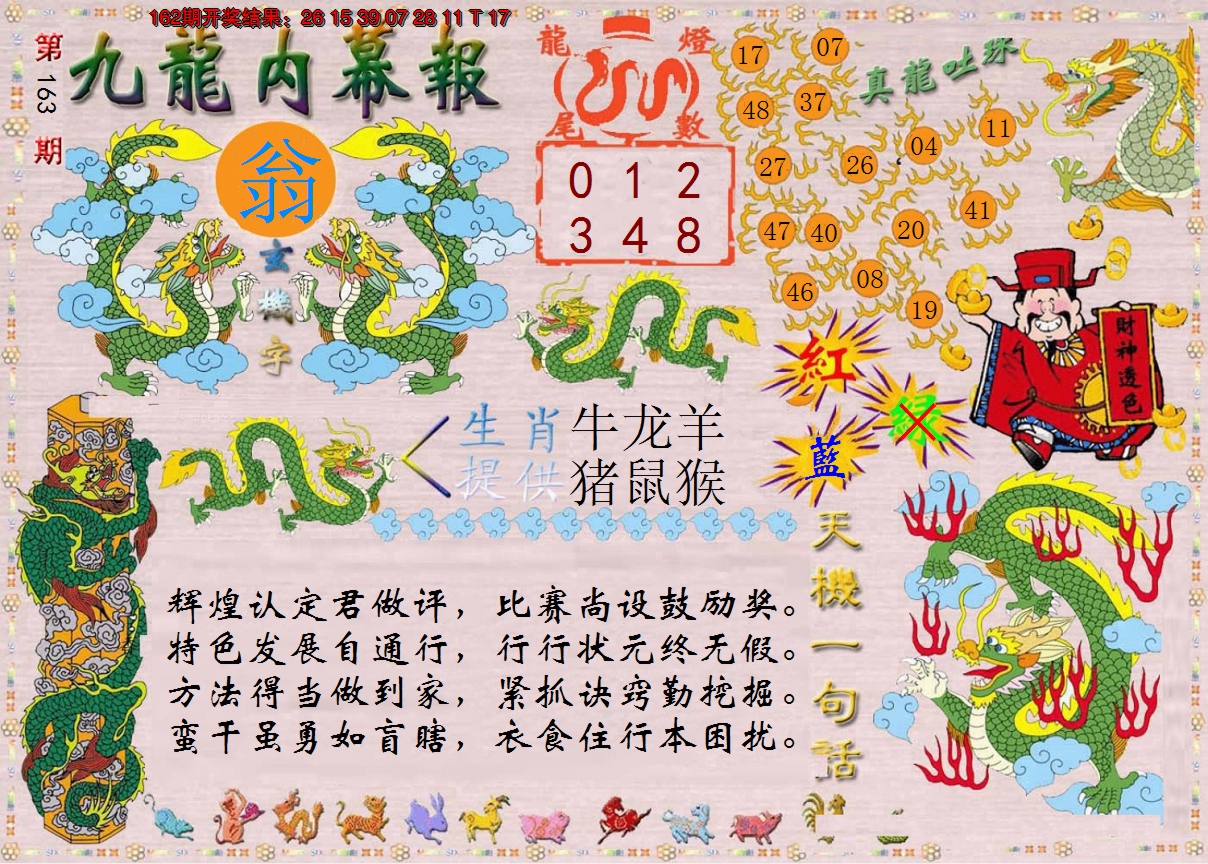 162期开奖结果：26 15 39 07 28 11 T 17
第163期
九龍内幕報
翁
玄機字
龍燈尾數
0 1 2
3 4 8
真龍吐珠
17 07
48 37
27 26 04 11
47 40 20 41
46 08 19
紅
绿
藍
財神透色
生肖提供
牛龙羊
猪鼠猴
辉煌认定君做评，比赛尚设鼓励奖。
特色发展自通行，行行状元终无假。
方法得当做到家，紧抓诀窍勤挖掘。
蛮干虽勇如盲瞎，衣食住行本困扰。
天機一句話